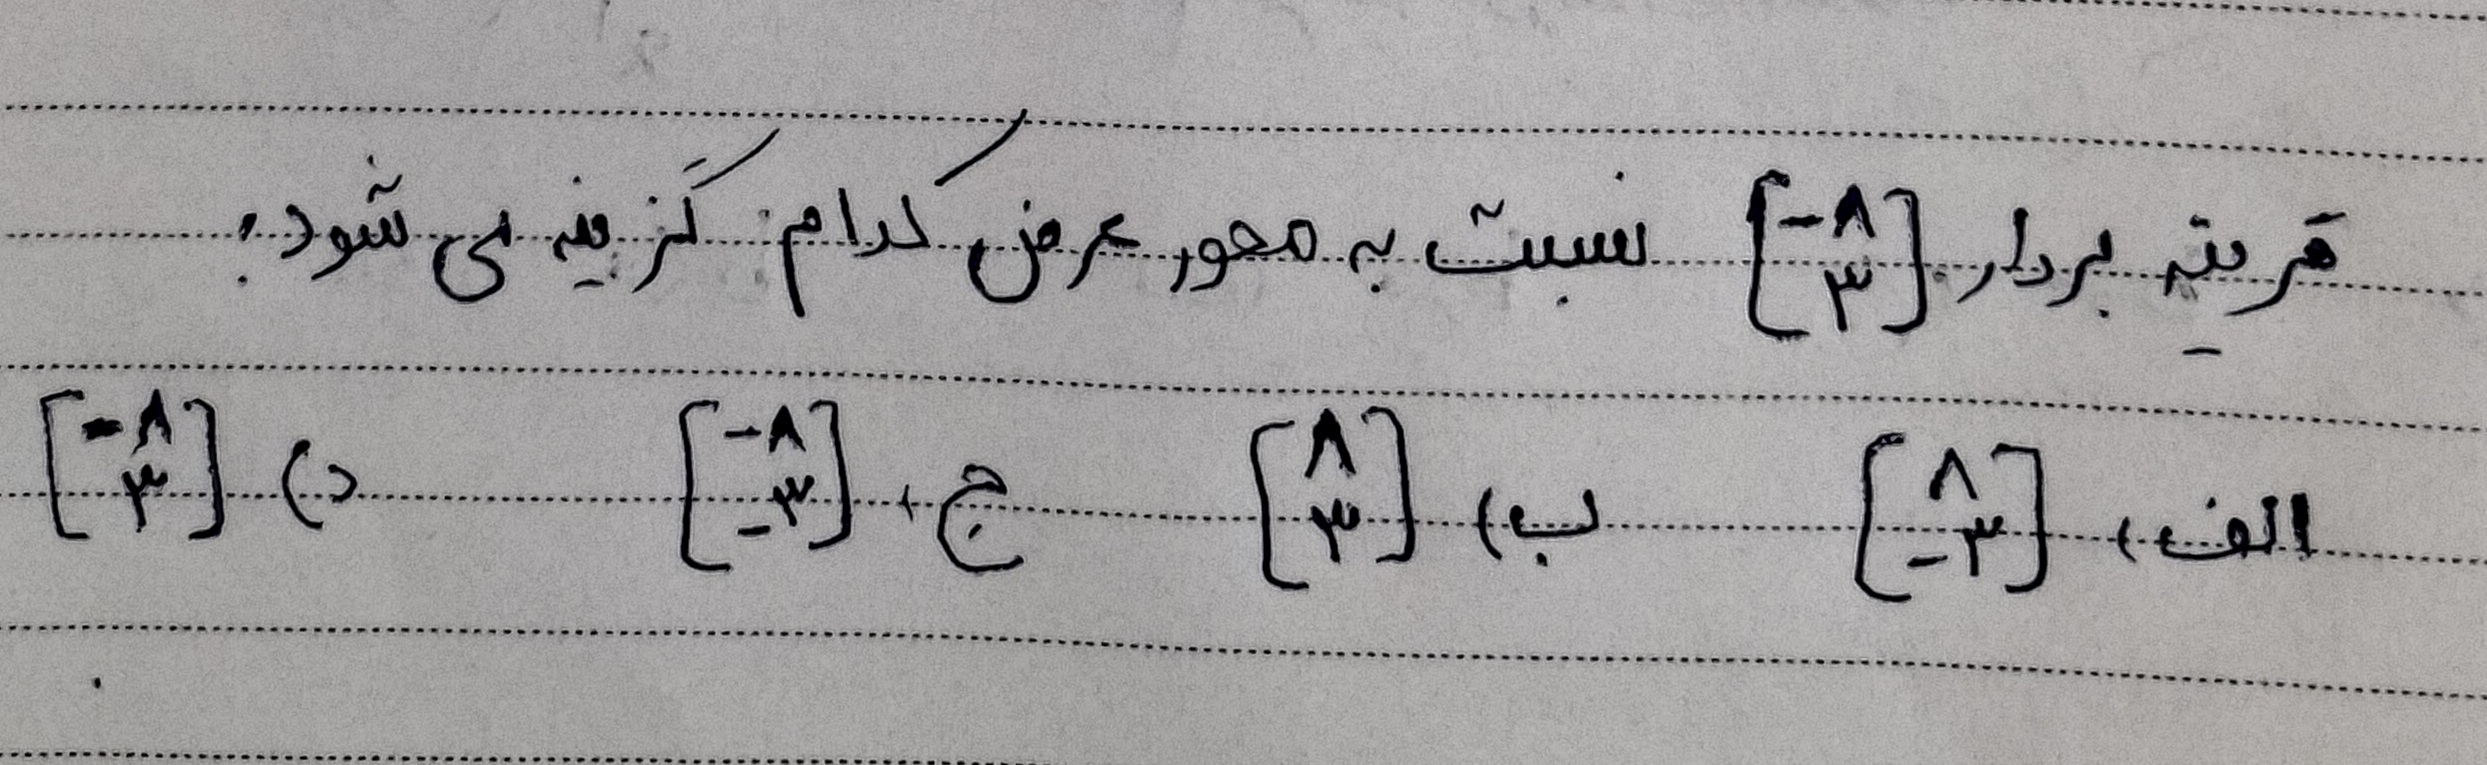 قرینه بردار [-۸ ۳] نسبت به محور عرض کدام گزینه می شود؟
الف) [۸ -۳] ب) [۸ ۳] ج) [-۸ -۳] د) [-۸ ۳]